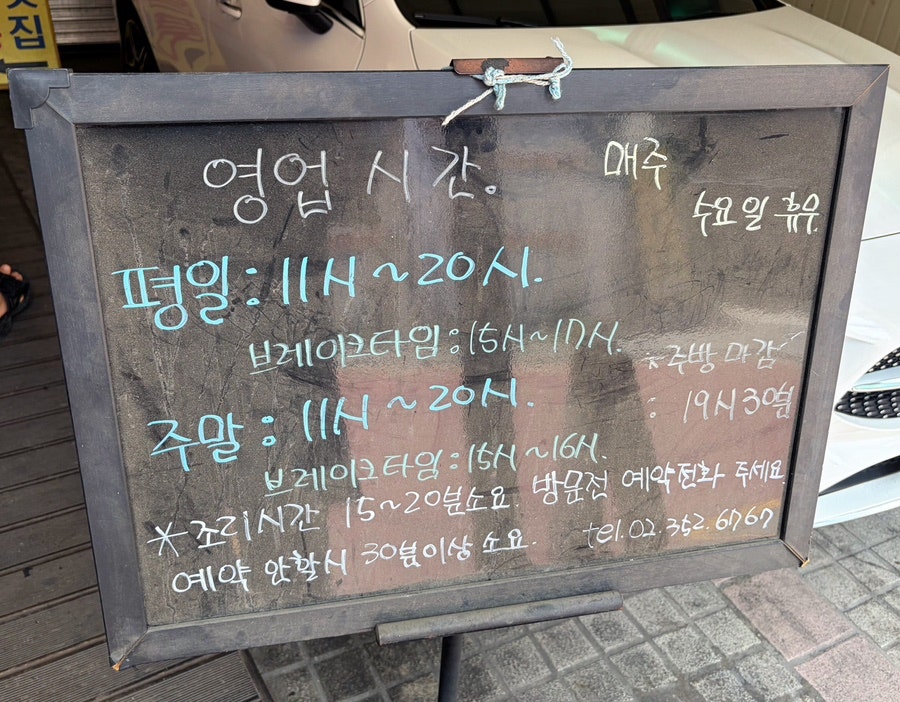 집
영업 시간.
매주
수요일 휴무.
평일 : 11시 ~ 20시.
브레이크타임 : 15시 ~ 17시.
※ 주방 마감
: 19시 30분
주말 : 11시 ~ 20시.
브레이크타임 : 15시 ~ 16시.
* 조리시간 15~20분소요. 방문전 예약전화 주세요
예약 안할시 30분이상 소요. tel.02.352.6767